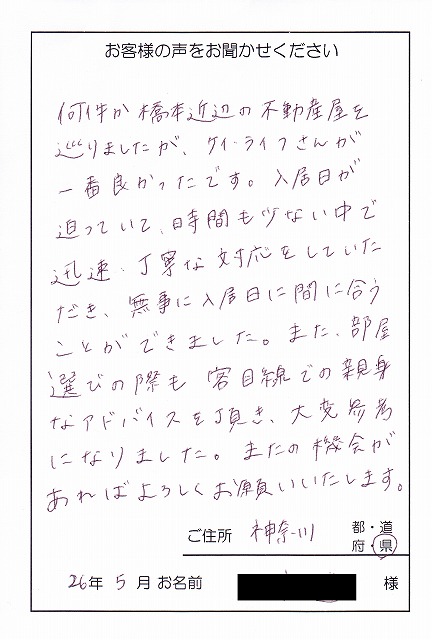 お客様の声をお聞かせください
何件か橋本近辺の不動産屋を
巡りましたが、ケイ・ライフさんが
一番良かったです。入居日が
迫っていて、時間も少ない中で
迅速・丁寧な対応をしていた
だき、無事に入居日に間に合う
ことができました。また、部屋
選びの際も客目線での親身
なアドバイスを頂き、大変参考
になりました。またの機会が
あればよろしくお願いいたします。
ご住所 神奈川 都・道
府・県
26年 5月 お名前 様